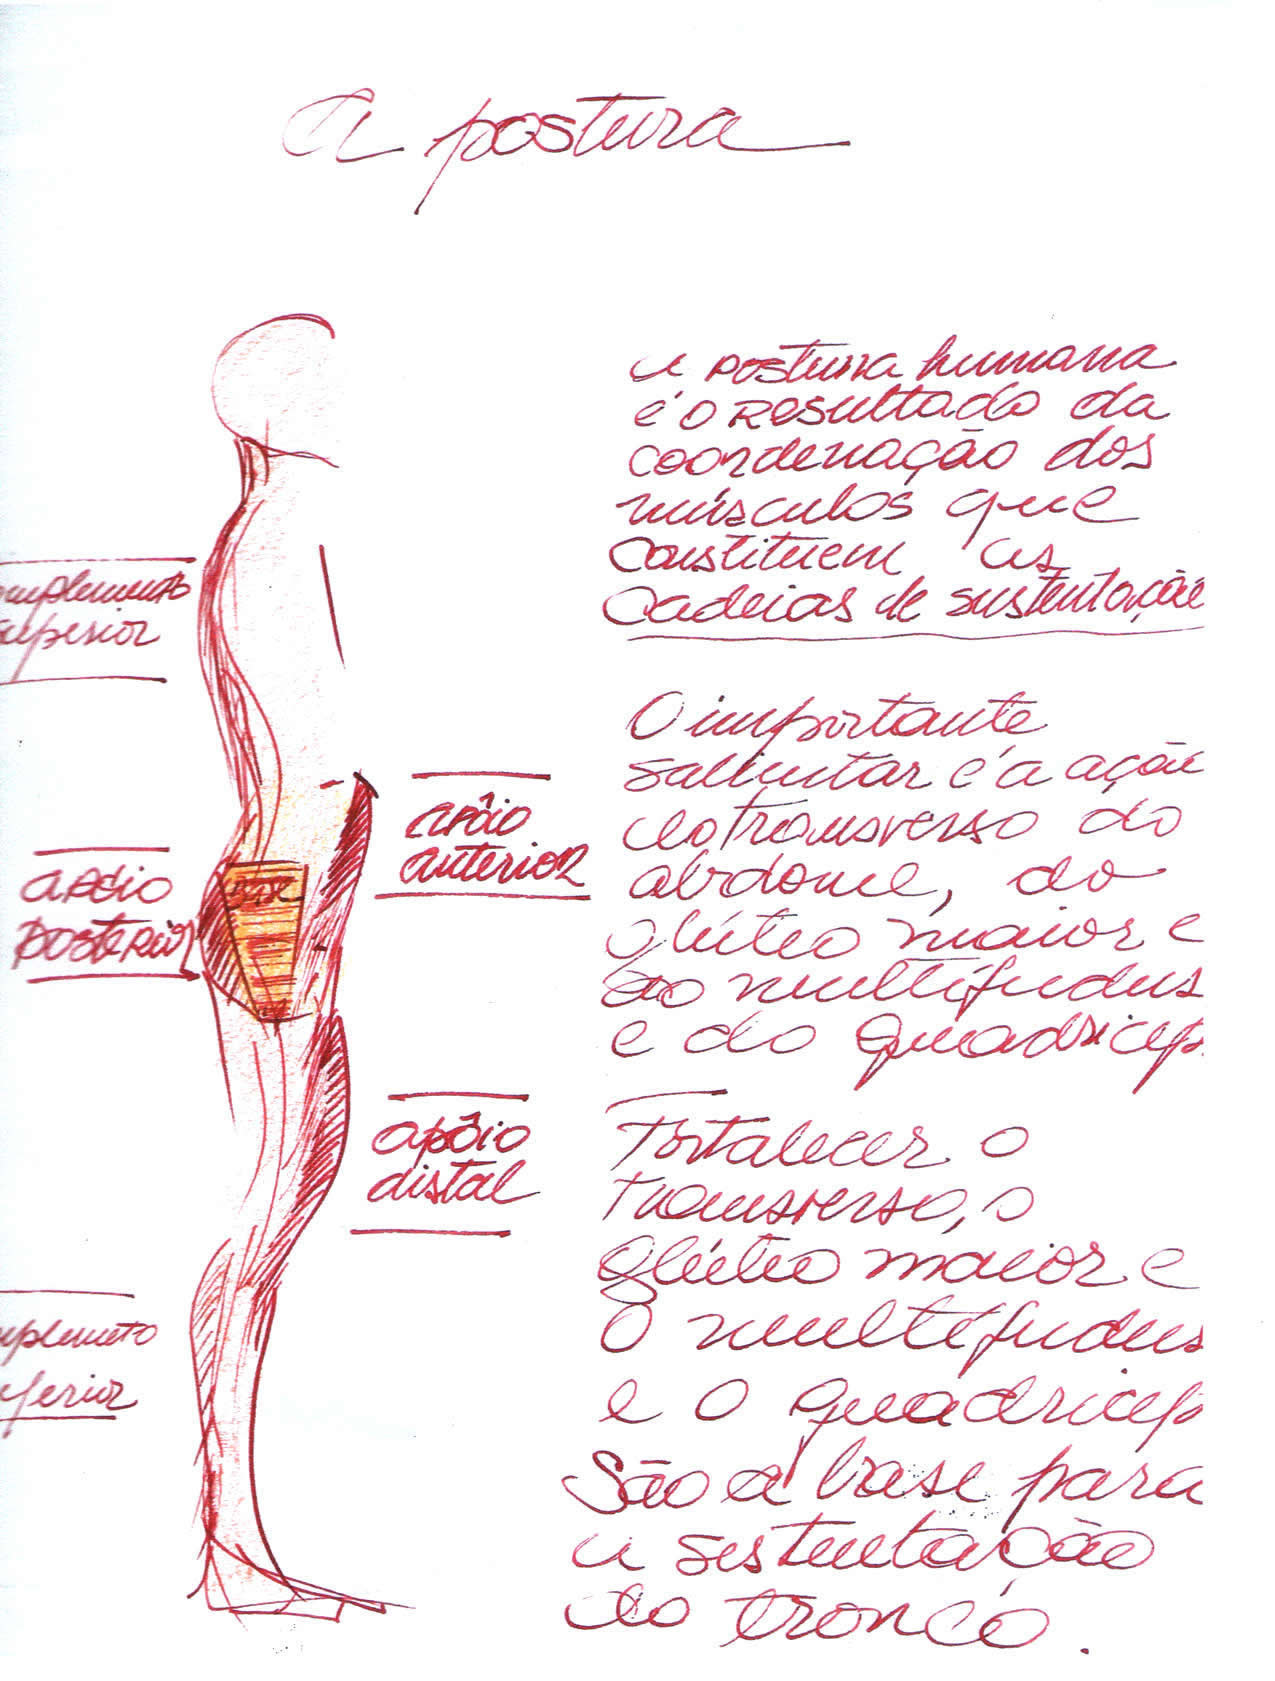 A postura
a postura humana
é o resultado da
coordenação dos
músculos que
constituem as
cadeias de sustentação
O importante
salientar é a ação
do transverso do
abdome, do
glúteo maior e
do multífudus
e do quadríceps
Fortalecer o
transverso, o
glúteo maior e
o multífudus
e o quadriceps
São a base para
a sustentação
do tronco.
omplemento
superior
apôio
anterior
apóio
posterior
apôio
distal
mplemeto
nferior